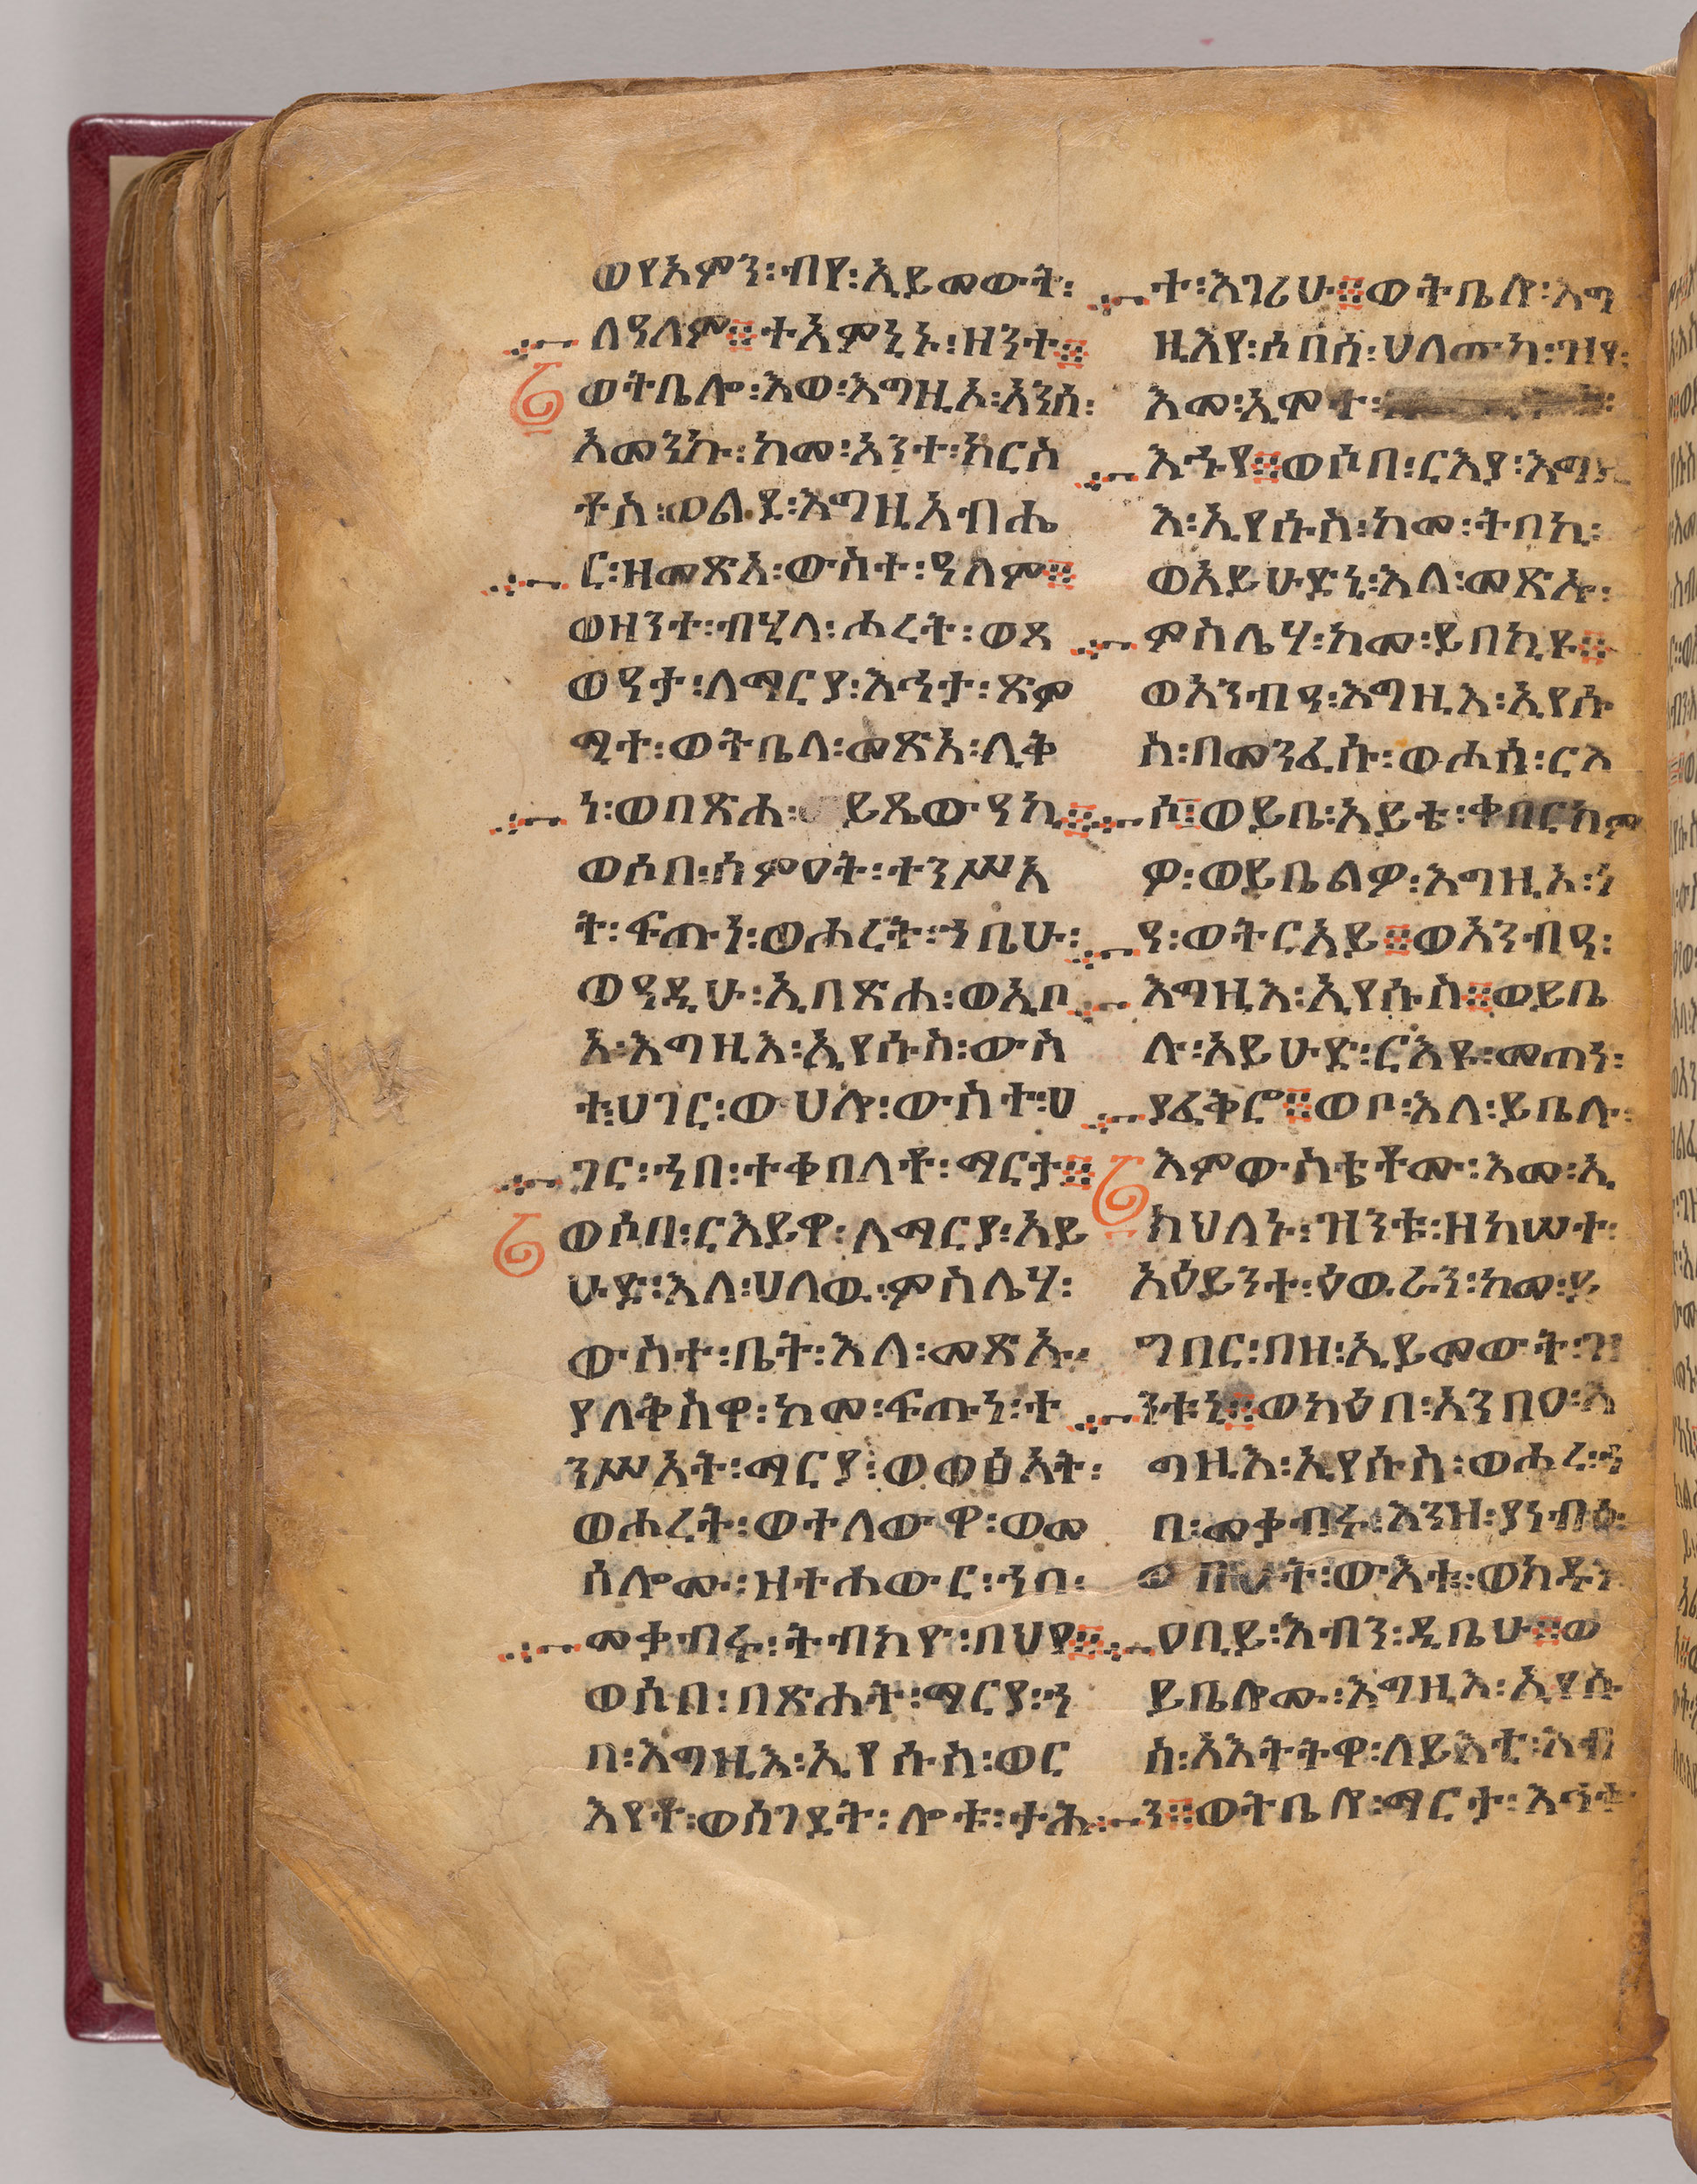 ወየአምን፡ብየ፡ኢይመውት፡
ለዓለም፨ተአምኒኑ፡ዘንተ፨
ወትቤሎ፡እወ፡እግዚኦ፡አንሰ፡
አመንኩ፡ከመ፡አንተ፡ክርስ
ቶስ፡ወልደ፡እግዚአብሔ
ር፡ዘመጽአ፡ውስተ፡ዓለም፨
ወዘንተ፡ብሂላ፡ሐረት፡ወጸ
ወዓታ፡ለማርያ፡እኅታ፡ጽም
ሚተ፡ወትቤላ፡መጽአ፡ሊቅ
ነ፡ወበጽሐ፡ይጼውዓኪ፨
ወሶበ፡ሰምዐት፡ተንሥአ
ት፡ፍጡነ፡ወሐረት፡ኀቤሁ፡
ወዓዲሁ፡ኢበጽሐ፡ወኢቦ
አ፡እግዚእ፡ኢየሱስ፡ውስ
ተ፡ሀገር፡ወሀሎ፡ውስተ፡ሀ
ገር፡ኀበ፡ተቀበለቶ፡ማርታ፨
ወሶበ፡ርእይዋ፡ለማርያ፡አይ
ሁድ፡እለ፡ሀለዉ፡ምስሌሃ፡
ውስተ፡ቤት፡እለ፡መጽኡ፡
ያለቅስዋ፡ከመ፡ፍጡነ፡ተ
ንሥአት፡ማርያ፡ወወፅአት፡
ወሐረት፡ወተለውዋ፡ወመ
ሰሎሙ፡ዝተሐውር፡ኀበ፡
መቃብሩ፡ትብክዮ፡በህየ፨
ወሶበ፡በጽሐት፡ማርያ፡ኀ
በ፡እግዚእ፡ኢየሱስ፡ወር
እየቶ፡ወሰገደት፡ሎቱ፡ታሕ
ተ፡እገሪሁ፨ወትቤሎ፡እግ
ዚእየ፡ሶበሰ፡ሀለውከ፡ዝየ፡
እመ፡ኢሞተ፡
እኁየ፨ወሶበ፡ርእያ፡እግዚ
እ፡ኢየሱስ፡ከመ፡ትበኪ፡
ወአይሁድኒ፡እለ፡መጽኡ፡
ምስሌሃ፡ከመ፡ይበኪዩ፨
ወአንብዓ፡እግዚእ፡ኢየሱ
ስ፡በመንፈሱ፡ወሖሰ፡ርእ
ሶ፨ወይቤ፡አይቴ፡ቀበርክም
ዎ፡ወይቤልዎ፡እግዚኦ፡ነ
ዓ፡ወትርአይ፨ወአንብዓ፡
እግዚእ፡ኢየሱስ፨ወይቤ
ሉ፡አይሁድ፡ርእዩ፡መጠነ፡
ያፈቅሮ፨ወቦ፡እለ፡ይቤሉ፡
እምውስቴቶሙ፡እመ፡ኢ
ክህለኑ፡ዝንቱ፡ዘከሠተ፡
አዕይንተ፡ዕዉራን፡ከመ፡ይ
ግበር፡በዘ፡ኢይመውት፡ዝ
ንቱኒ፨ወካዕበ፡አንበዐ፡እ
ግዚእ፡ኢየሱስ፡ወሐረ፡ኀ
በ፡መቃብሩ፡እንዘ፡ያነብዕ፡
ወ በአት፡ውእቱ፡ወክዱን
ዐቢይ፡እብን፡ዲቤሁ፨ወ
ይቤሎሙ፡እግዚእ፡ኢየሱ
ስ፡አእትትዋ፡ለይእቲ፡እብ
ን፨ወትቤሎ፡ማርታ፡እኅቱ